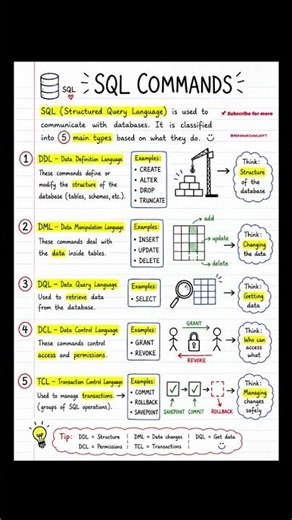 SQL
SQL COMMANDS
SQL (Structured Query Language) is used to
communicate with databases. It is classified
into 5 main types based on what they do.
Subscribe for more
1 DDL - Data Definition Language
These commands define or
modify the structure of the
database (tables, schemas, etc.).
Examples:
• CREATE
• ALTER
• DROP
• TRUNCATE
Think:
Structure
of the
database
2 DML - Data Manipulation Language
These commands deal with
the data inside tables.
Examples:
• INSERT
• UPDATE
• DELETE
add
update
delete
Think:
Changing
the data
3 DQL - Data Query Language
Used to retrieve data
from the database.
Examples:
• SELECT
Think:
Getting
data
4 DCL - Data Control Language
These commands control
access and permissions.
Examples:
• GRANT
• REVOKE
GRANT
REVOKE
Think:
Who can
access
what
5 TCL - Transaction Control Language
Used to manage transactions.
(groups of SQL operations).
Examples:
• COMMIT
• ROLLBACK
• SAVEPOINT
SAVEPOINT COMMIT ROLLBACK
Think:
Managing
changes
safely
Tip: DDL = Structure | DML = Data changes | DQL = Get data
DCL = Permissions | TCL = Transactions